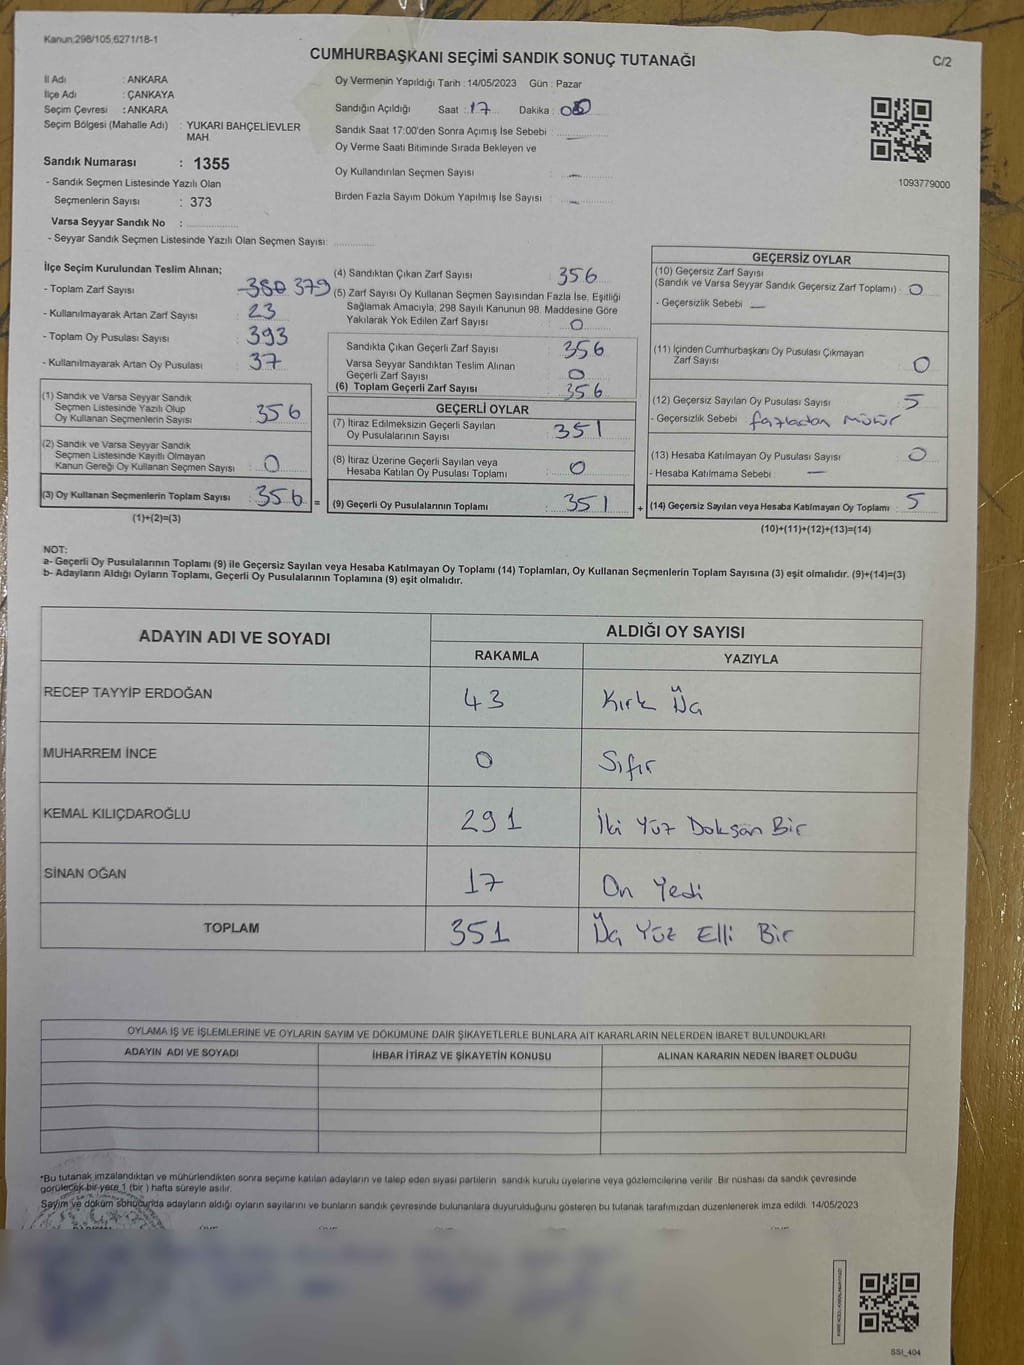 Kanun;298/105;6271/18-1
CUMHURBAŞKANI SEÇİMİ SANDIK SONUÇ TUTANAĞI
C/2
İl Adı : ANKARA
İlçe Adı : ÇANKAYA
Seçim Çevresi : ANKARA
Seçim Bölgesi (Mahalle Adı) : YUKARI BAHÇELİEVLER
MAH.
Sandık Numarası : 1355
- Sandık Seçmen Listesinde Yazılı Olan
Seçmenlerin Sayısı : 373
Varsa Seyyar Sandık No :
- Seyyar Sandık Seçmen Listesinde Yazılı Olan Seçmen Sayısı:
Oy Vermenin Yapıldığı Tarih : 14/05/2023 Gün : Pazar
Sandığın Açıldığı Saat : 17 Dakika :
Sandık Saat 17:00'den Sonra Açımış İse Sebebi :
Oy Verme Saati Bitiminde Sırada Bekleyen ve
Oy Kullandırılan Seçmen Sayısı :
Birden Fazla Sayım Döküm Yapılmış İse Sayısı :
1093779000
İlçe Seçim Kurulundan Teslim Alınan;
- Toplam Zarf Sayısı 380 379
- Kullanılmayarak Artan Zarf Sayısı : 23
- Toplam Oy Pusulası Sayısı : 393
- Kullanılmayarak Artan Oy Pusulası : 37
(1) Sandık ve Varsa Seyyar Sandık
Seçmen Listesinde Yazılı Olup
Oy Kullanan Seçmenlerin Sayısı : 356
(2) Sandık ve Varsa Seyyar Sandık
Seçmen Listesinde Kayıtlı Olmayan
Kanun Gereği Oy Kullanan Seçmen Sayısı : 0
(3) Oy Kullanan Seçmenlerin Toplam Sayısı : 356 =
(1)+(2)=(3)
(4) Sandıktan Çıkan Zarf Sayısı : 356
(5) Zarf Sayısı Oy Kullanan Seçmen Sayısından Fazla İse, Eşitliği
Sağlamak Amacıyla, 298 Sayılı Kanunun 98. Maddesine Göre
Yakılarak Yok Edilen Zarf Sayısı : 0
Sandıkta Çıkan Geçerli Zarf Sayısı : 356
Varsa Seyyar Sandıktan Teslim Alınan
Geçerli Zarf Sayısı : 0
(6) Toplam Geçerli Zarf Sayısı : 356
GEÇERLİ OYLAR
(7) İtiraz Edilmeksizin Geçerli Sayılan
Oy Pusulalarının Sayısı : 351
(8) İtiraz Üzerine Geçerli Sayılan veya
Hesaba Katılan Oy Pusulası Toplamı : 0
(9) Geçerli Oy Pusulalarının Toplamı : 351 +
GEÇERSİZ OYLAR
(10) Geçersiz Zarf Sayısı
(Sandık ve Varsa Seyyar Sandık Geçersiz Zarf Toplamı) : 0
- Geçersizlik Sebebi : —
(11) İçinden Cumhurbaşkanı Oy Pusulası Çıkmayan
Zarf Sayısı : 0
(12) Geçersiz Sayılan Oy Pusulası Sayısı : 5
- Geçersizlik Sebebi : fazladan mühür
(13) Hesaba Katılmayan Oy Pusulası Sayısı : 0
- Hesaba Katılmama Sebebi : —
(14) Geçersiz Sayılan veya Hesaba Katılmayan Oy Toplamı : 5
(10)+(11)+(12)+(13)=(14)
NOT:
a- Geçerli Oy Pusulalarının Toplamı (9) ile Geçersiz Sayılan veya Hesaba Katılmayan Oy Toplamı (14) Toplamları, Oy Kullanan Seçmenlerin Toplam Sayısına (3) eşit olmalıdır. (9)+(14)=(3)
b- Adayların Aldığı Oyların Toplamı, Geçerli Oy Pusulalarının Toplamına (9) eşit olmalıdır.
ADAYIN ADI VE SOYADI ALDIĞI OY SAYISI
RAKAMLA YAZIYLA
RECEP TAYYİP ERDOĞAN 43 Kırk Üç
MUHARREM İNCE 0 Sıfır
KEMAL KILIÇDAROĞLU 291 İki Yüz Doksan Bir
SİNAN OĞAN 17 On Yedi
TOPLAM 351 Üç Yüz Elli Bir
OYLAMA İŞ VE İŞLEMLERİNE VE OYLARIN SAYIM VE DÖKÜMÜNE DAİR ŞİKAYETLERLE BUNLARA AİT KARARLARIN NELERDEN İBARET BULUNDUKLARI
ADAYIN ADI VE SOYADI İHBAR İTİRAZ VE ŞİKAYETİN KONUSU ALINAN KARARIN NEDEN İBARET OLDUĞU
*Bu tutanak imzalandıktan ve mühürlendikten sonra seçime katılan adayların ve talep eden siyasi partilerin sandık kurulu üyelerine veya gözlemcilerine verilir. Bir nüshası da sandık çevresinde
görülecek bir yere 1 (bir ) hafta süreyle asılır.
Sayım ve döküm sonucunda adayların aldığı oyların sayılarını ve bunların sandık çevresinde bulunanlara duyurulduğunu gösteren bu tutanak tarafımızdan düzenlenerek imza edildi. 14/05/2023
SSİ_404